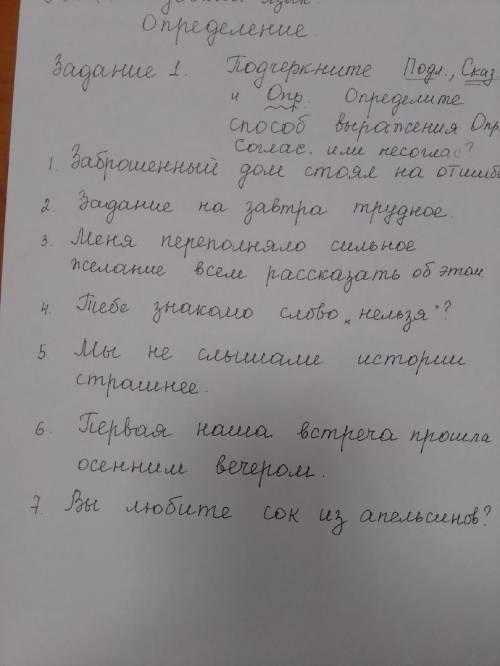 язык.
Определение.
Задание 1. Подчеркните Подл., Сказ
и Опр. Определите
способ выражения Опр.
Соглас. или несоглас?
1. Заброшенный дом стоял на отшибе
2. Задание на завтра трудное.
3. Меня переполняло сильное
желание всем рассказать об этом.
4. Тебе знакомо слово „нельзя"?
5. Мы не слышали истории
страшнее.
6. Первая наша встреча прошла
осенним вечером.
7. Вы любите сок из апельсинов?